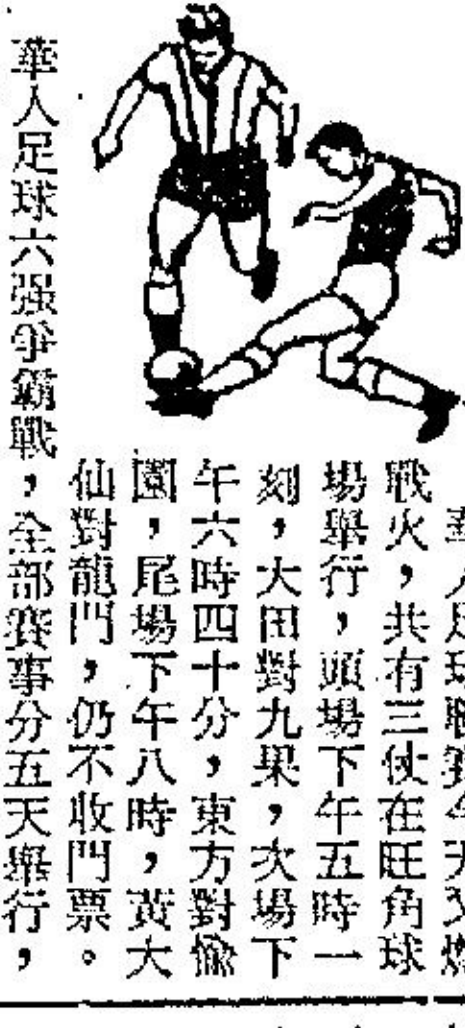 華人足球聯賽今天又燃
戰火，共有三仗在旺角球
場舉行，頭場下午五時一
刻，大田對九果，次場下
午六時四十分，東方對愉
園，尾場下午八時，黃大
仙對龍門，仍不收門票。
華人足球六强爭霸戰，全部賽事分五天舉行，